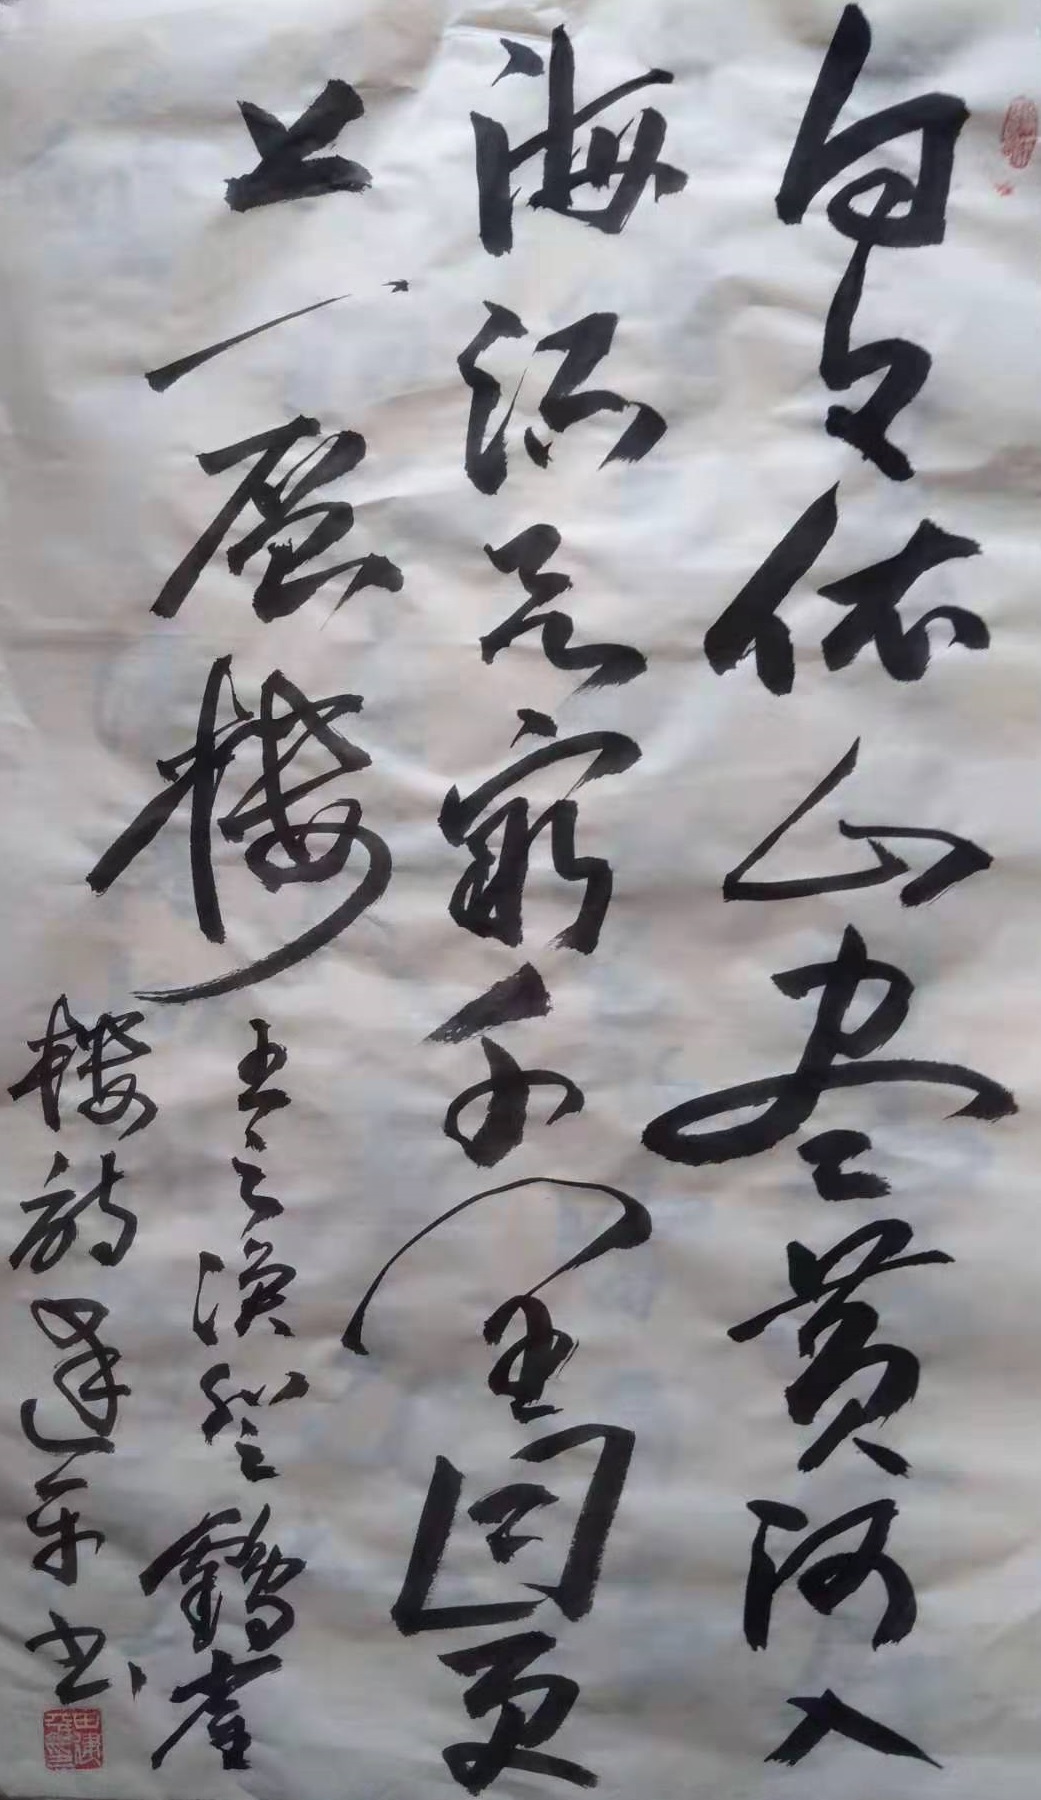 白日依山尽黄河入
海流欲穷千里目更
上一层楼
王之涣登鹳雀
楼诗建平书